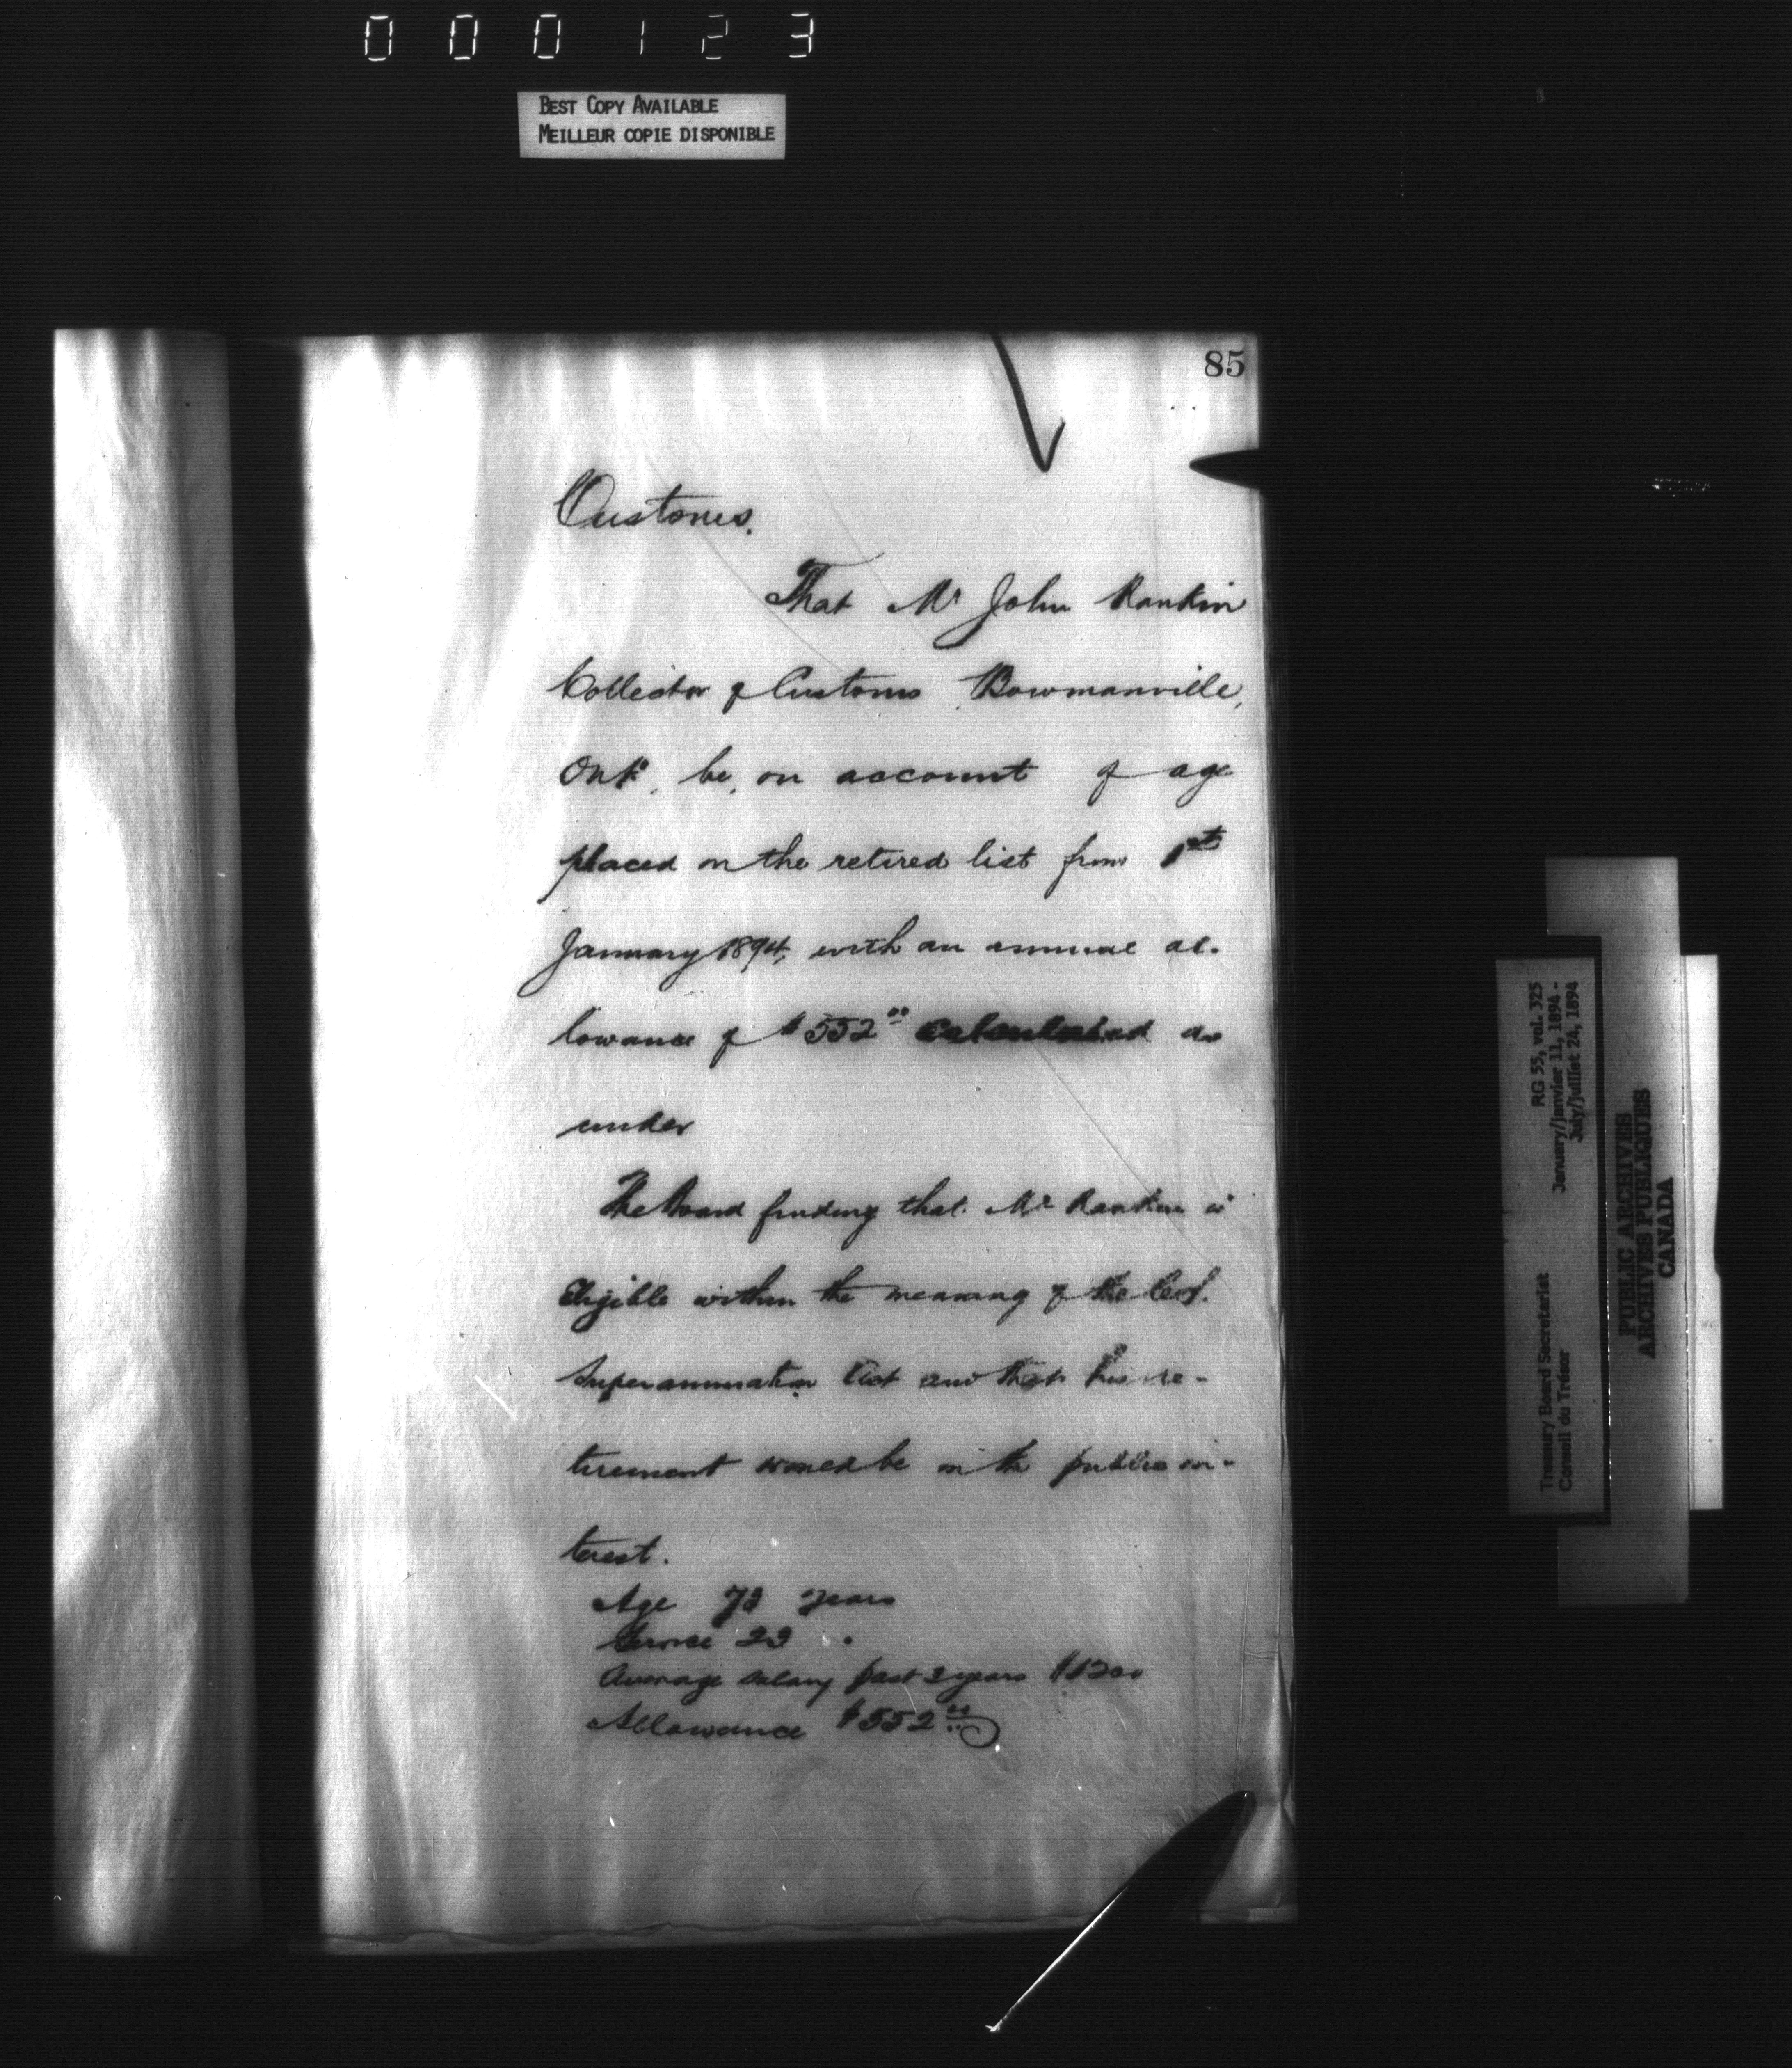 000123
BEST COPY AVAILABLE
MEILLEUR COPIE DISPONIBLE
85
Customs.
That Mr John Rankin
Collector of Customs Bowmanville,
Ont. be, on account of age
placed on the retired list from 1st
January 1894, with an annual al-
lowance of $552 00 calculated as
under
The Board finding that Mr Rankin is
Eligible within the meaning of the
Superannuation Act and that his re-
tirement would be in the public in-
terest.
Age 73 years
Service 23 "
Average salary past 3 years $1200
Allowance $552 00
RG 55, vol. 325
January/janvier 11, 1894 -
July/juillet 24, 1894
Treasury Board Secretariat
Conseil du Trésor
PUBLIC ARCHIVES
ARCHIVES PUBLIQUES
CANADA